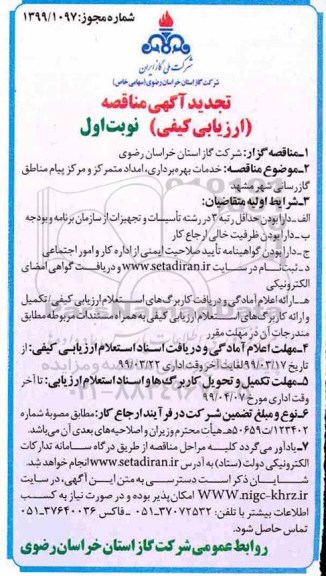 شماره مجوز: ۱۳۹۹/۱۰۹۷
شرکت ملی گاز ایران
شرکت گاز استان خراسان رضوی (سهامی خاص)
تجدید آگهی مناقصه
(ارزیابی کیفی) نوبت اول
۱-مناقصه گزار: شرکت گاز استان خراسان رضوی
۲-موضوع مناقصه: خدمات بهره برداری، امداد متمرکز و مرکز پیام مناطق
گازرسانی شهر مشهد
۳-شرایط اولیه متقاضیان:
الف-دارا بودن حداقل رتبه ۳ در رشته تأسیسات و تجهیزات از سازمان برنامه و بودجه
ب-دارا بودن ظرفیت خالی ارجاع کار
ج-دارا بودن گواهینامه تأیید صلاحیت ایمنی از اداره کار و امور اجتماعی
د-ثبت نام در سایت www.setadiran.ir و دریافت گواهی امضای
الکترونیکی
هـ-ارائه اعلام آمادگی و دریافت کاربرگ های استعلام ارزیابی کیفی/ تکمیل
و ارائه کاربرگ های استعلام ارزیابی کیفی به همراه مستندات مربوطه مطابق
مندرجات آن در مهلت مقرر
۴-مهلت اعلام آمادگی و دریافت اسناد استعلام ارزیابی کیفی: از
تاریخ ۹۹/۰۳/۱۷ لغایت آخر وقت اداری ۹۹/۰۳/۲۲
۵-مهلت تکمیل و تحویل کاربرگ ها و اسناد استعلام ارزیابی: تا آخر
وقت اداری مورخ ۹۹/۰۴/۰۷
۶-نوع و مبلغ تضمین شرکت در فرآیند ارجاع کار: مطابق مصوبه شماره
۱۲۳۴۰۲/ت۵۰۶۵۹هـ هیأت محترم وزیران و اصلاحیه های بعدی آن می باشد.
۷-یادآور می گردد کلیه مراحل مناقصه از طریق درگاه سامانه تدارکات
الکترونیکی دولت (ستاد) به آدرس www.setadiran.ir انجام خواهد شد.
شایان ذکر است دسترسی به متن این آگهی، در سایت
WWW.nigc-khrz.ir امکان پذیر بوده و در صورت نیاز به کسب
اطلاعات بیشتر با تلفن: ۳۷۰۷۲۵۳۲-۰۵۱ - فاکس ۳۷۶۴۰۰۳۶-۰۵۱
تماس حاصل شود.
روابط عمومی شرکت گاز استان خراسان رضوی